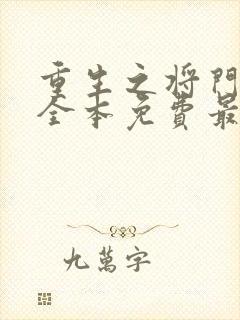 重生之将门
全本免费最
九萬字